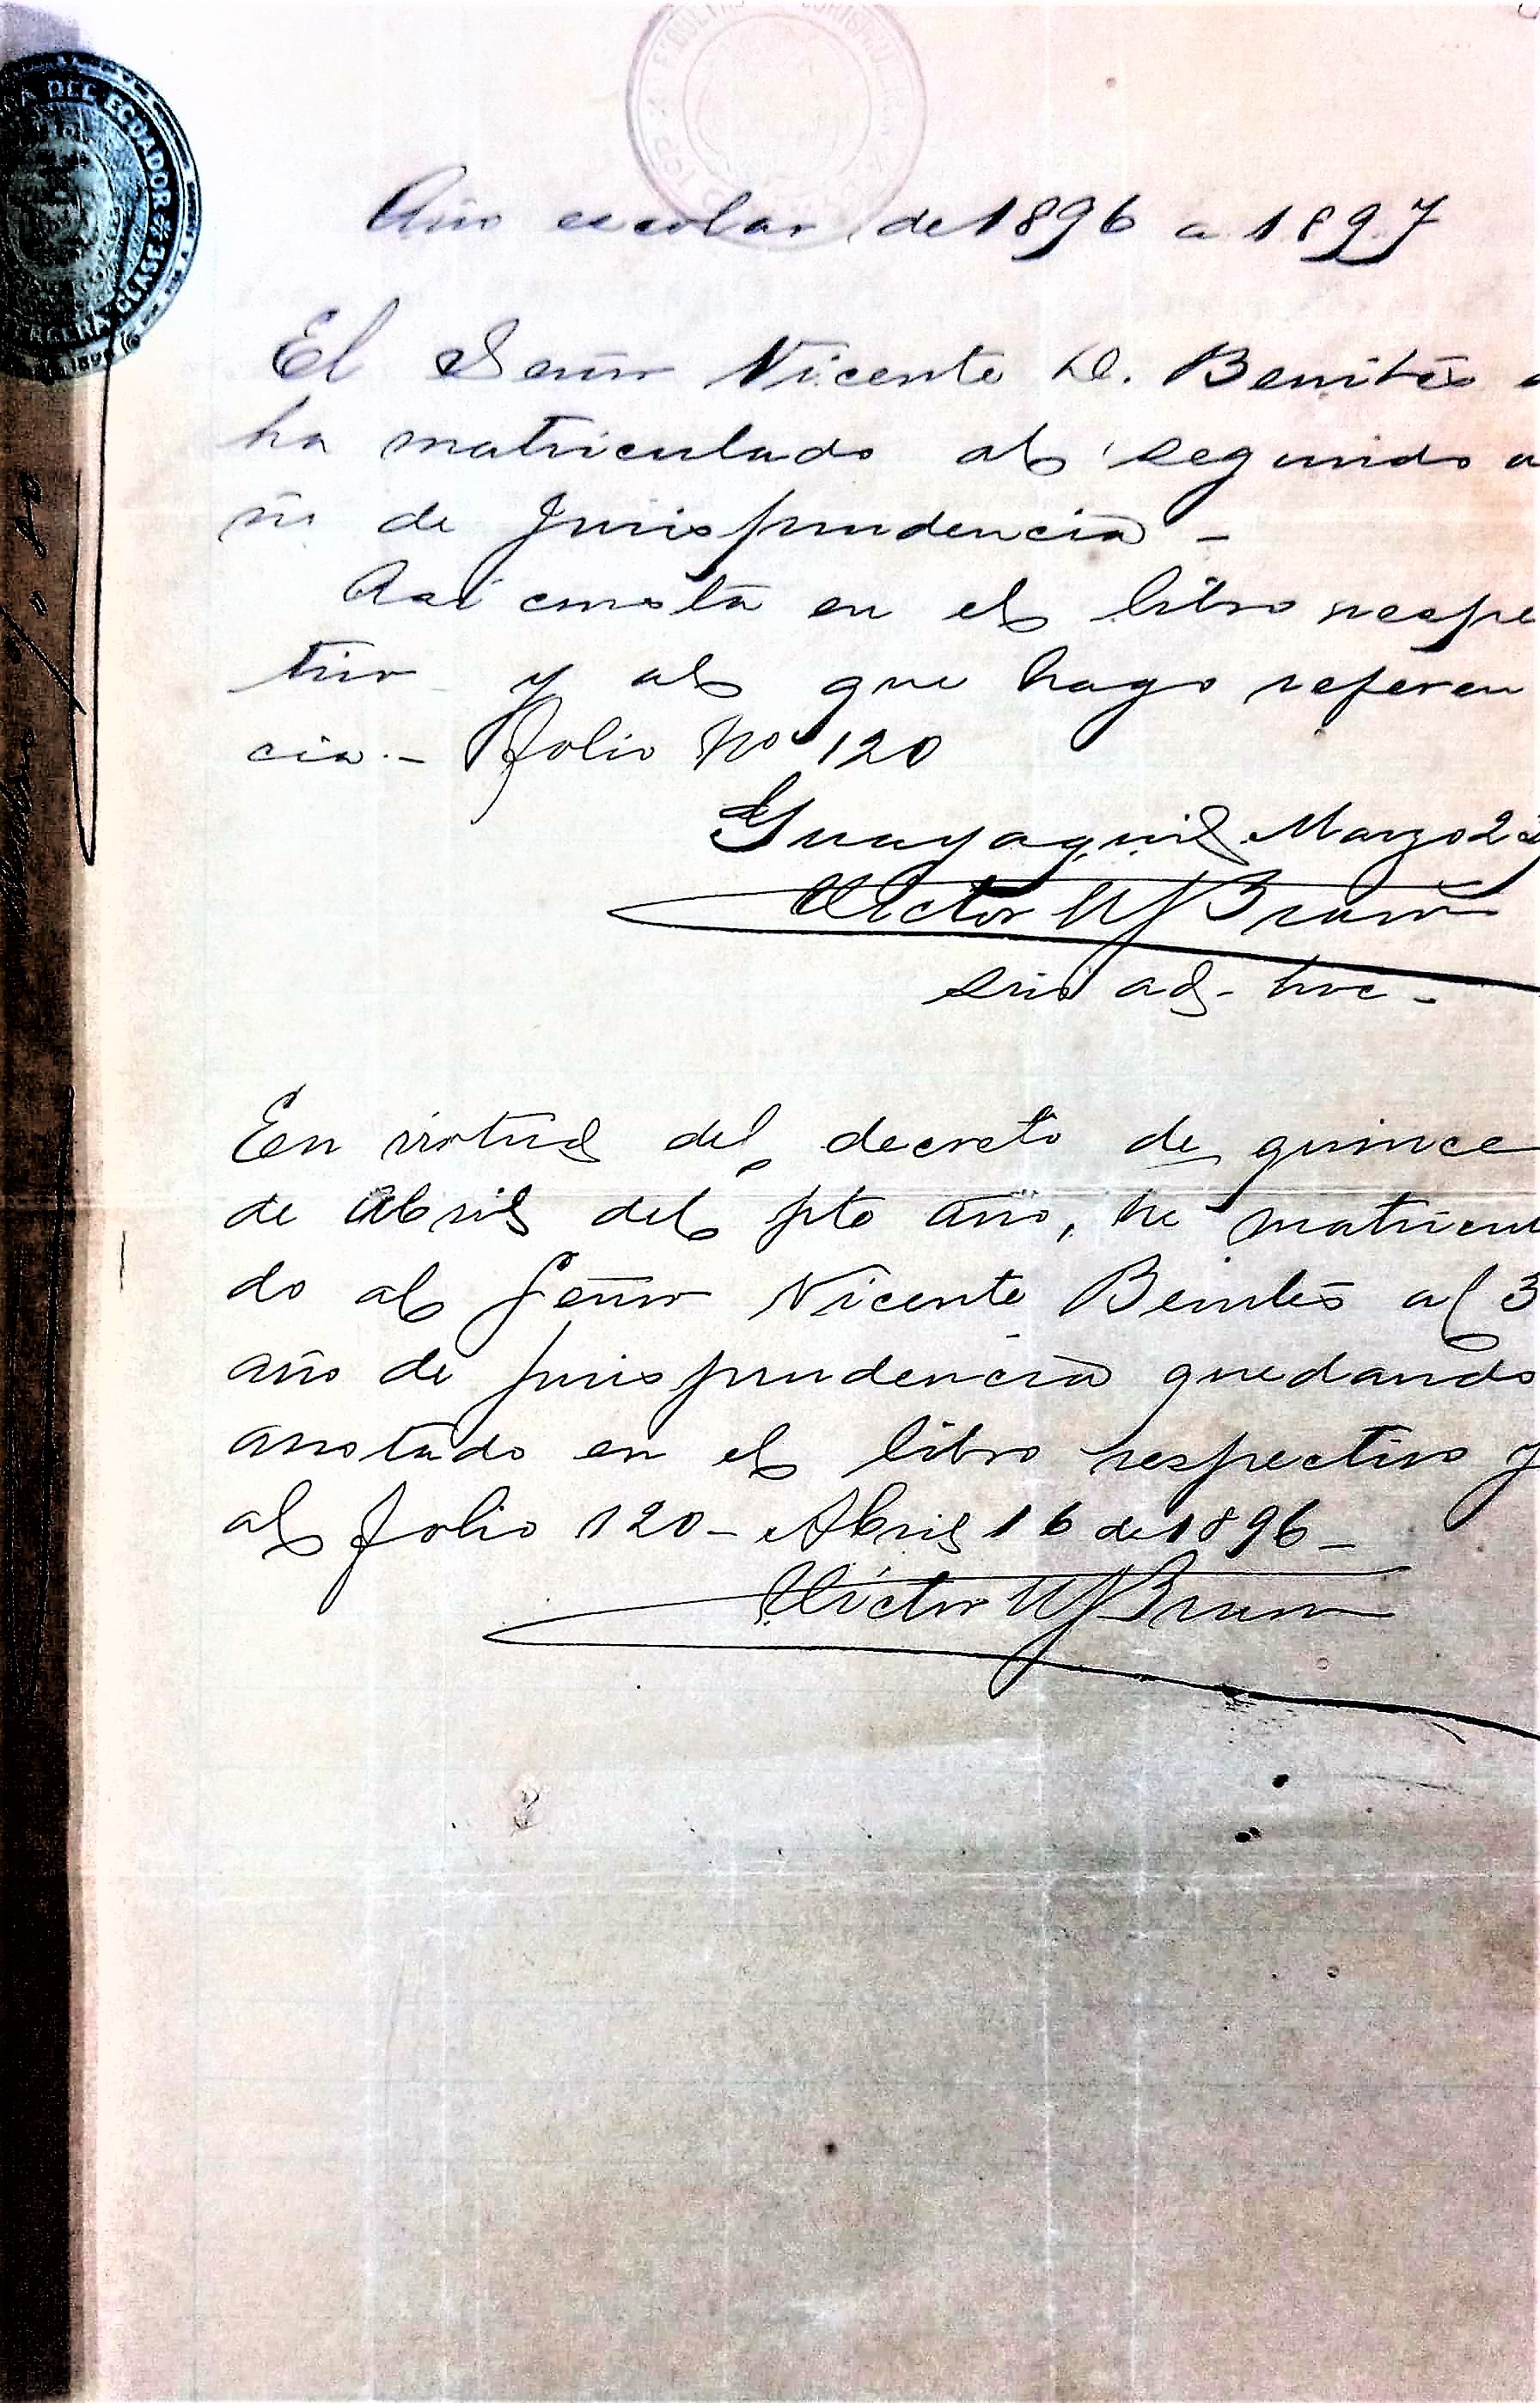 DEL ECUADOR
CLASE
Año escolar de 1896 a 1897
El Señor Vicente D. Benites
ha matriculado al segundo a
ño de Jurisprudencia -
Asi consta en el libro respe
tivo y al que hago referen
cia.- Folio No 120
Guayaquil Marzo 2
Victor M
srio ad-hoc-
En virtud del decreto de quince
de Abril del pte año, he matricul
do al Señor Vicente Benites al 3
año de jurisprudencia quedando
anotado en el libro respectivo y
al folio 120- Abril 16 de 1896-
Victor M